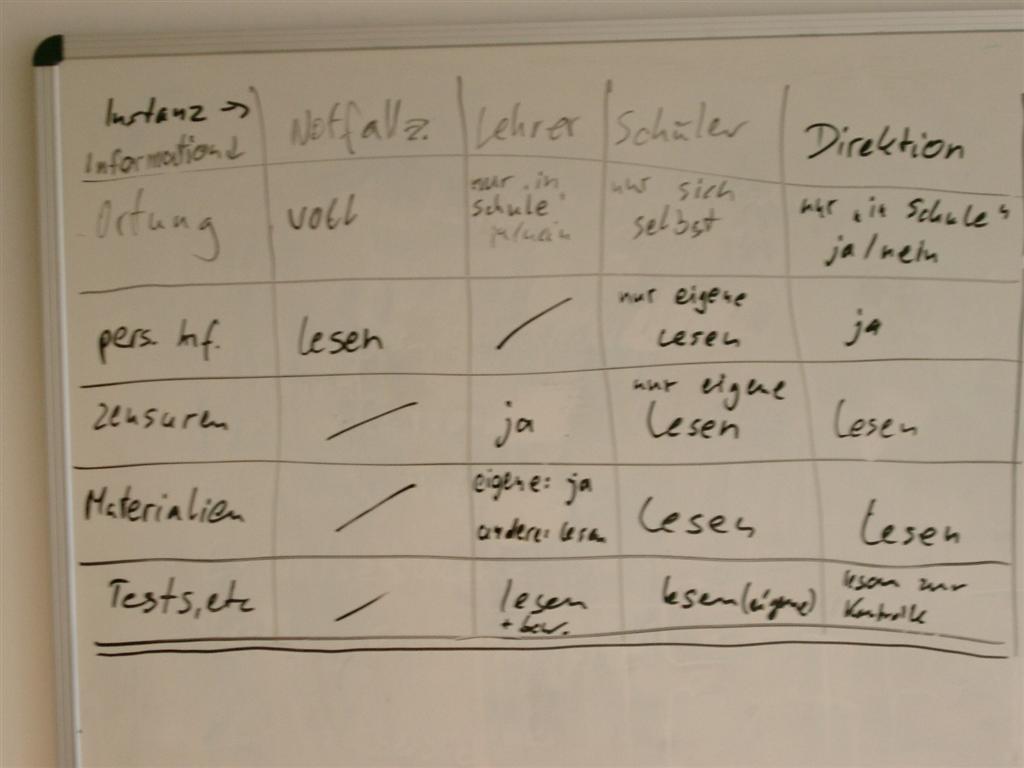 Instanz → Notfallz. Lehrer Schüler Direktion
Information ↓
Ortung voll nur „in Schule“ ja/nein nur sich selbst nur „in Schule“ ja/nein
pers. Inf. lesen / nur eigene lesen ja
Zensuren / ja nur eigene lesen lesen
Materialien / eigene: ja andere: lesen lesen lesen
Tests, etc / lesen + bew. lesen (eigene) lesen zur Kontrolle